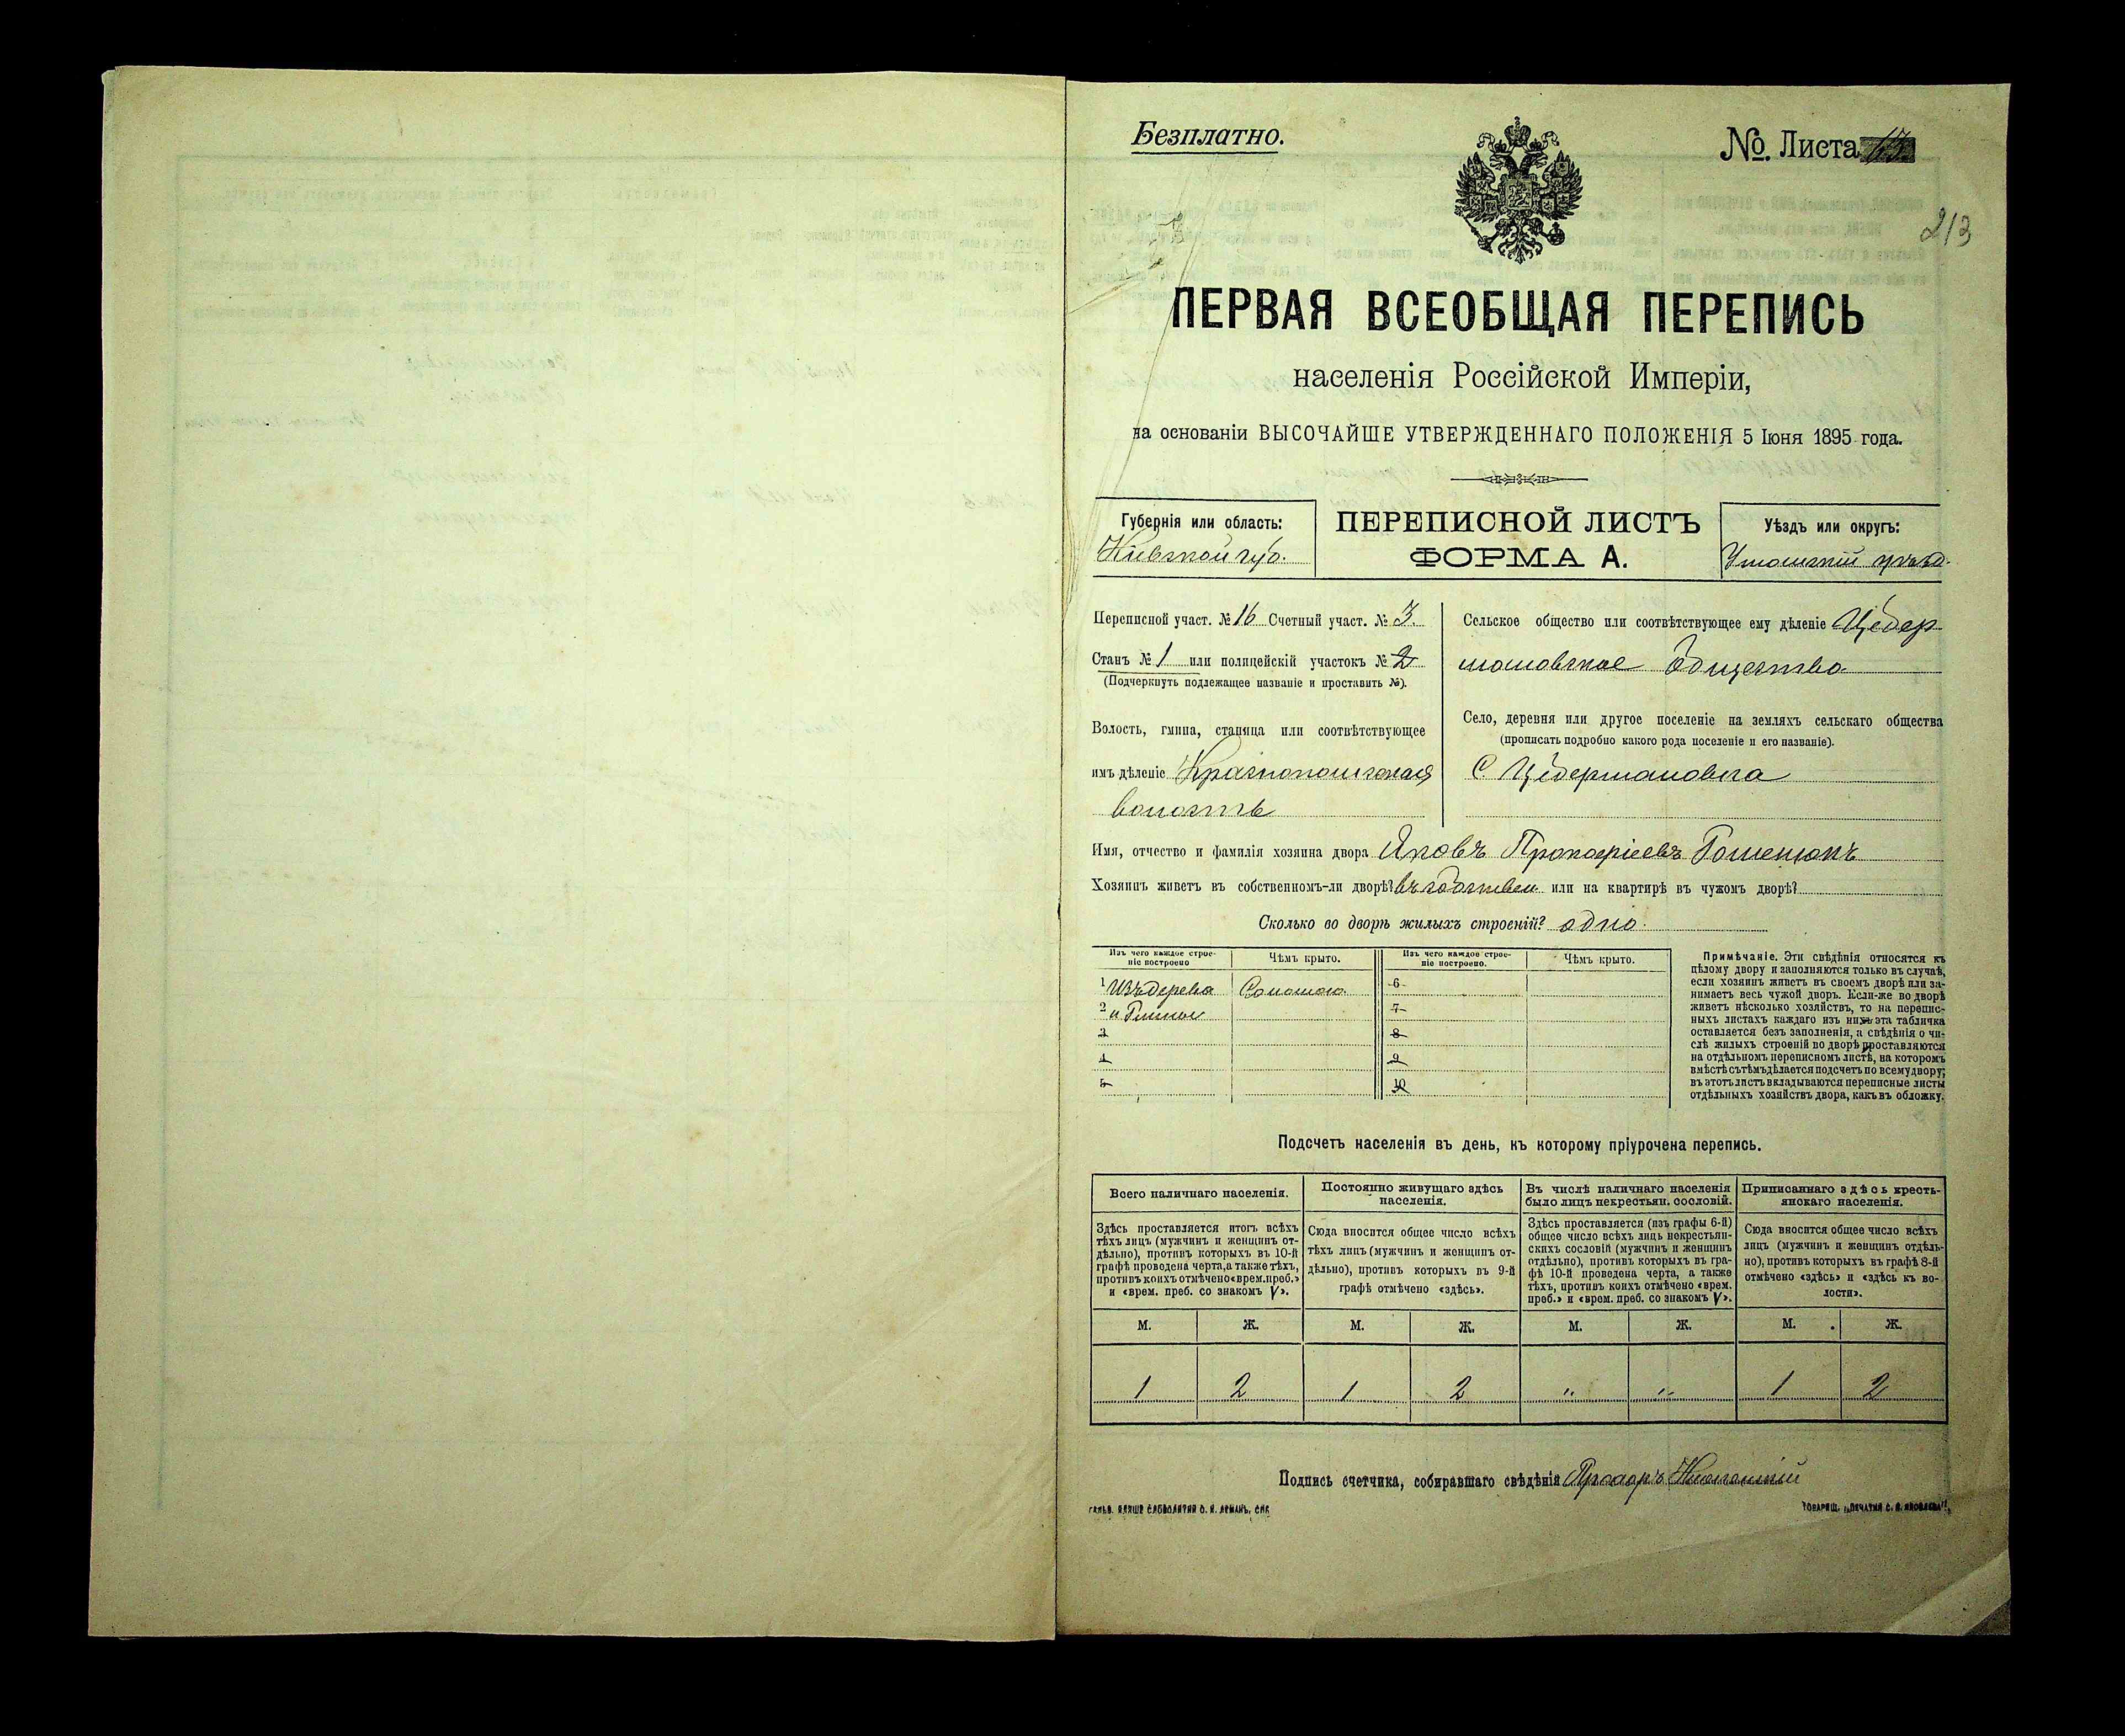 Безплатно.
№. Листа
213
ПЕРВАЯ ВСЕОБЩАЯ ПЕРЕПИСЬ
населенія Россійской Имперіи,
на основаніи ВЫСОЧАЙШЕ УТВЕРЖДЕННАГО ПОЛОЖЕНІЯ 5 Іюня 1895 года.
Губернія или область:
Кіевской губ.
ПЕРЕПИСНОЙ ЛИСТЪ
ФОРМА А.
Уѣздъ или округъ:
Уманскій уѣзд.
Переписной участ. № 16 Счетный участ. № 3.
Станъ № 1 или полицейскій участокъ № 2
(Подчеркнуть подлежащее названіе и проставить №).
Волость, гмина, станица или соотвѣтствующее
имъ дѣленіе Краснопольская
волость
Сельское общество или соотвѣтствующее ему дѣленіе Цебер
мановское Общество
Село, деревня или другое поселеніе на земляхъ сельскаго общества
(прописать подробно какого рода поселеніе и его названіе).
С. Цебермановка
Имя, отчество и фамилія хозяина двора Яковъ Прокофіевъ
Хозяинъ живетъ въ собственномъ-ли дворѣ? въ собствен. или на квартирѣ въ чужомъ дворѣ?
Сколько во дворѣ жилыхъ строеній? одно.
Изъ чего каждое строе-
ніе построено
Чѣмъ крыто.
Изъ чего каждое строе-
ніе построено.
Чѣмъ крыто.
1 Изъ дерева Соломою
2 и Глины
3
4
5
6
7
8
9
10
Примѣчаніе. Эти свѣдѣнія относятся къ
цѣлому двору и заполняются только въ случаѣ,
если хозяинъ живетъ въ своемъ дворѣ или за-
нимаетъ весь чужой дворъ. Если-же во дворѣ
живетъ нѣсколько хозяйствъ, то на перепис-
ныхъ листахъ каждаго изъ нихъ эта табличка
оставляется безъ заполненія, а свѣдѣнія о чи-
слѣ жилыхъ строеній во дворѣ проставляются
на отдѣльномъ переписномъ листѣ, на которомъ
вмѣстѣ съ тѣмъ дѣлается подсчетъ по всему двору;
въ этотъ листъ вкладываются переписные листы
отдѣльныхъ хозяйствъ двора, какъ въ обложку.
Подсчетъ населенія въ день, къ которому пріурочена перепись.
Всего наличнаго населенія.
Здѣсь проставляется итогъ всѣхъ
тѣхъ лицъ (мужчинъ и женщинъ от-
дѣльно), противъ которыхъ въ 10-й
графѣ проведена черта, а также тѣхъ,
противъ коихъ отмѣчено «врем. преб.»
и «врем. преб. со знакомъ V».
Постоянно живущаго здѣсь
населенія.
Сюда вносится общее число всѣхъ
тѣхъ лицъ (мужчинъ и женщинъ от-
дѣльно), противъ которыхъ въ 9-й
графѣ отмѣчено «здѣсь».
Въ числѣ наличнаго населенія
было лицъ некрестьян. сословій.
Здѣсь проставляется (изъ графы 6-й)
общее число всѣхъ лицъ некрестьян-
скихъ сословій (мужчинъ и женщинъ
отдѣльно), противъ которыхъ въ гра-
фѣ 10-й проведена черта, а также
тѣхъ, противъ коихъ отмѣчено «врем.
преб.» и «врем. преб. со знакомъ V».
Приписаннаго здѣсь кресть-
янскаго населенія.
Сюда вносится общее число всѣхъ
лицъ (мужчинъ и женщинъ отдѣль-
но), противъ которыхъ въ графѣ 8-й
отмѣчено «здѣсь» и «здѣсь къ во-
лости».
М. Ж. М. Ж. М. Ж. М. Ж.
1 2 1 2 " " 1 2
Подпись счетчика, собиравшаго свѣдѣнія